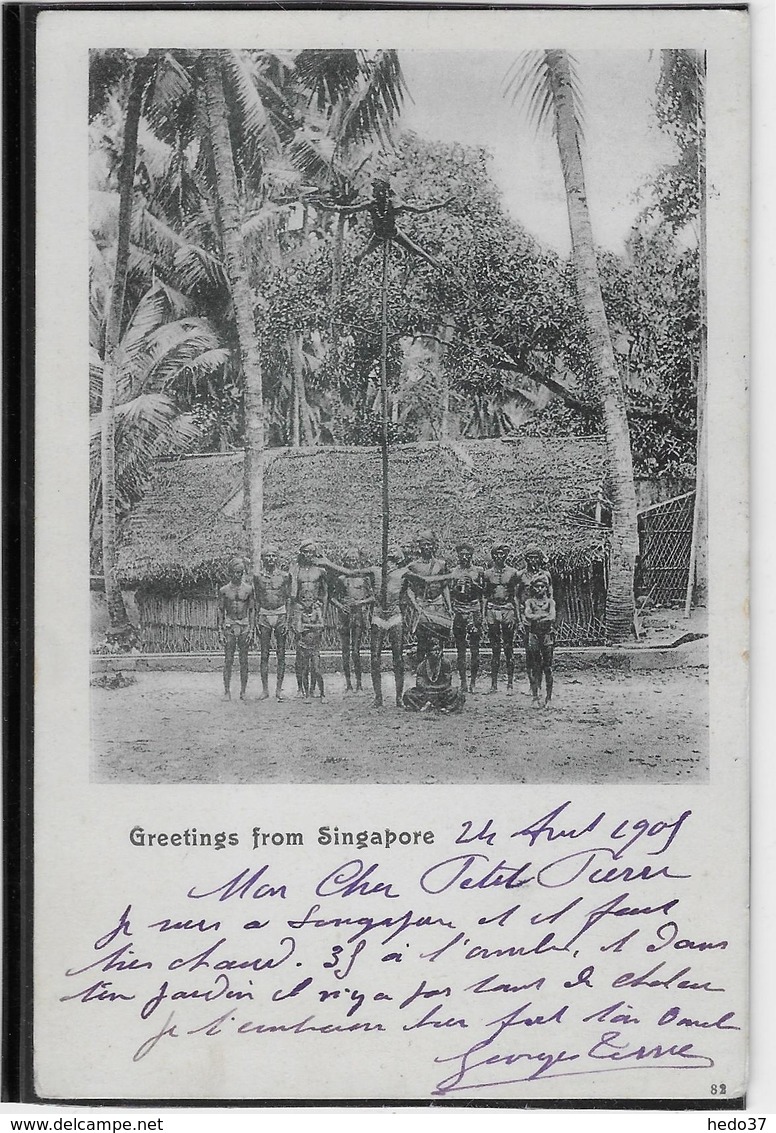 Greetings from Singapore 24 Avril 1905
Mon Cher Petit Pierre
Je suis a Singapour et il fait
très chaud. 35 à l'ombre, et dans
ton jardin il n'y a pas tant de chaleur
Je t'embrasse bien fort ton Oncle
Georges Pierre
82
hedo37
hedo37.com